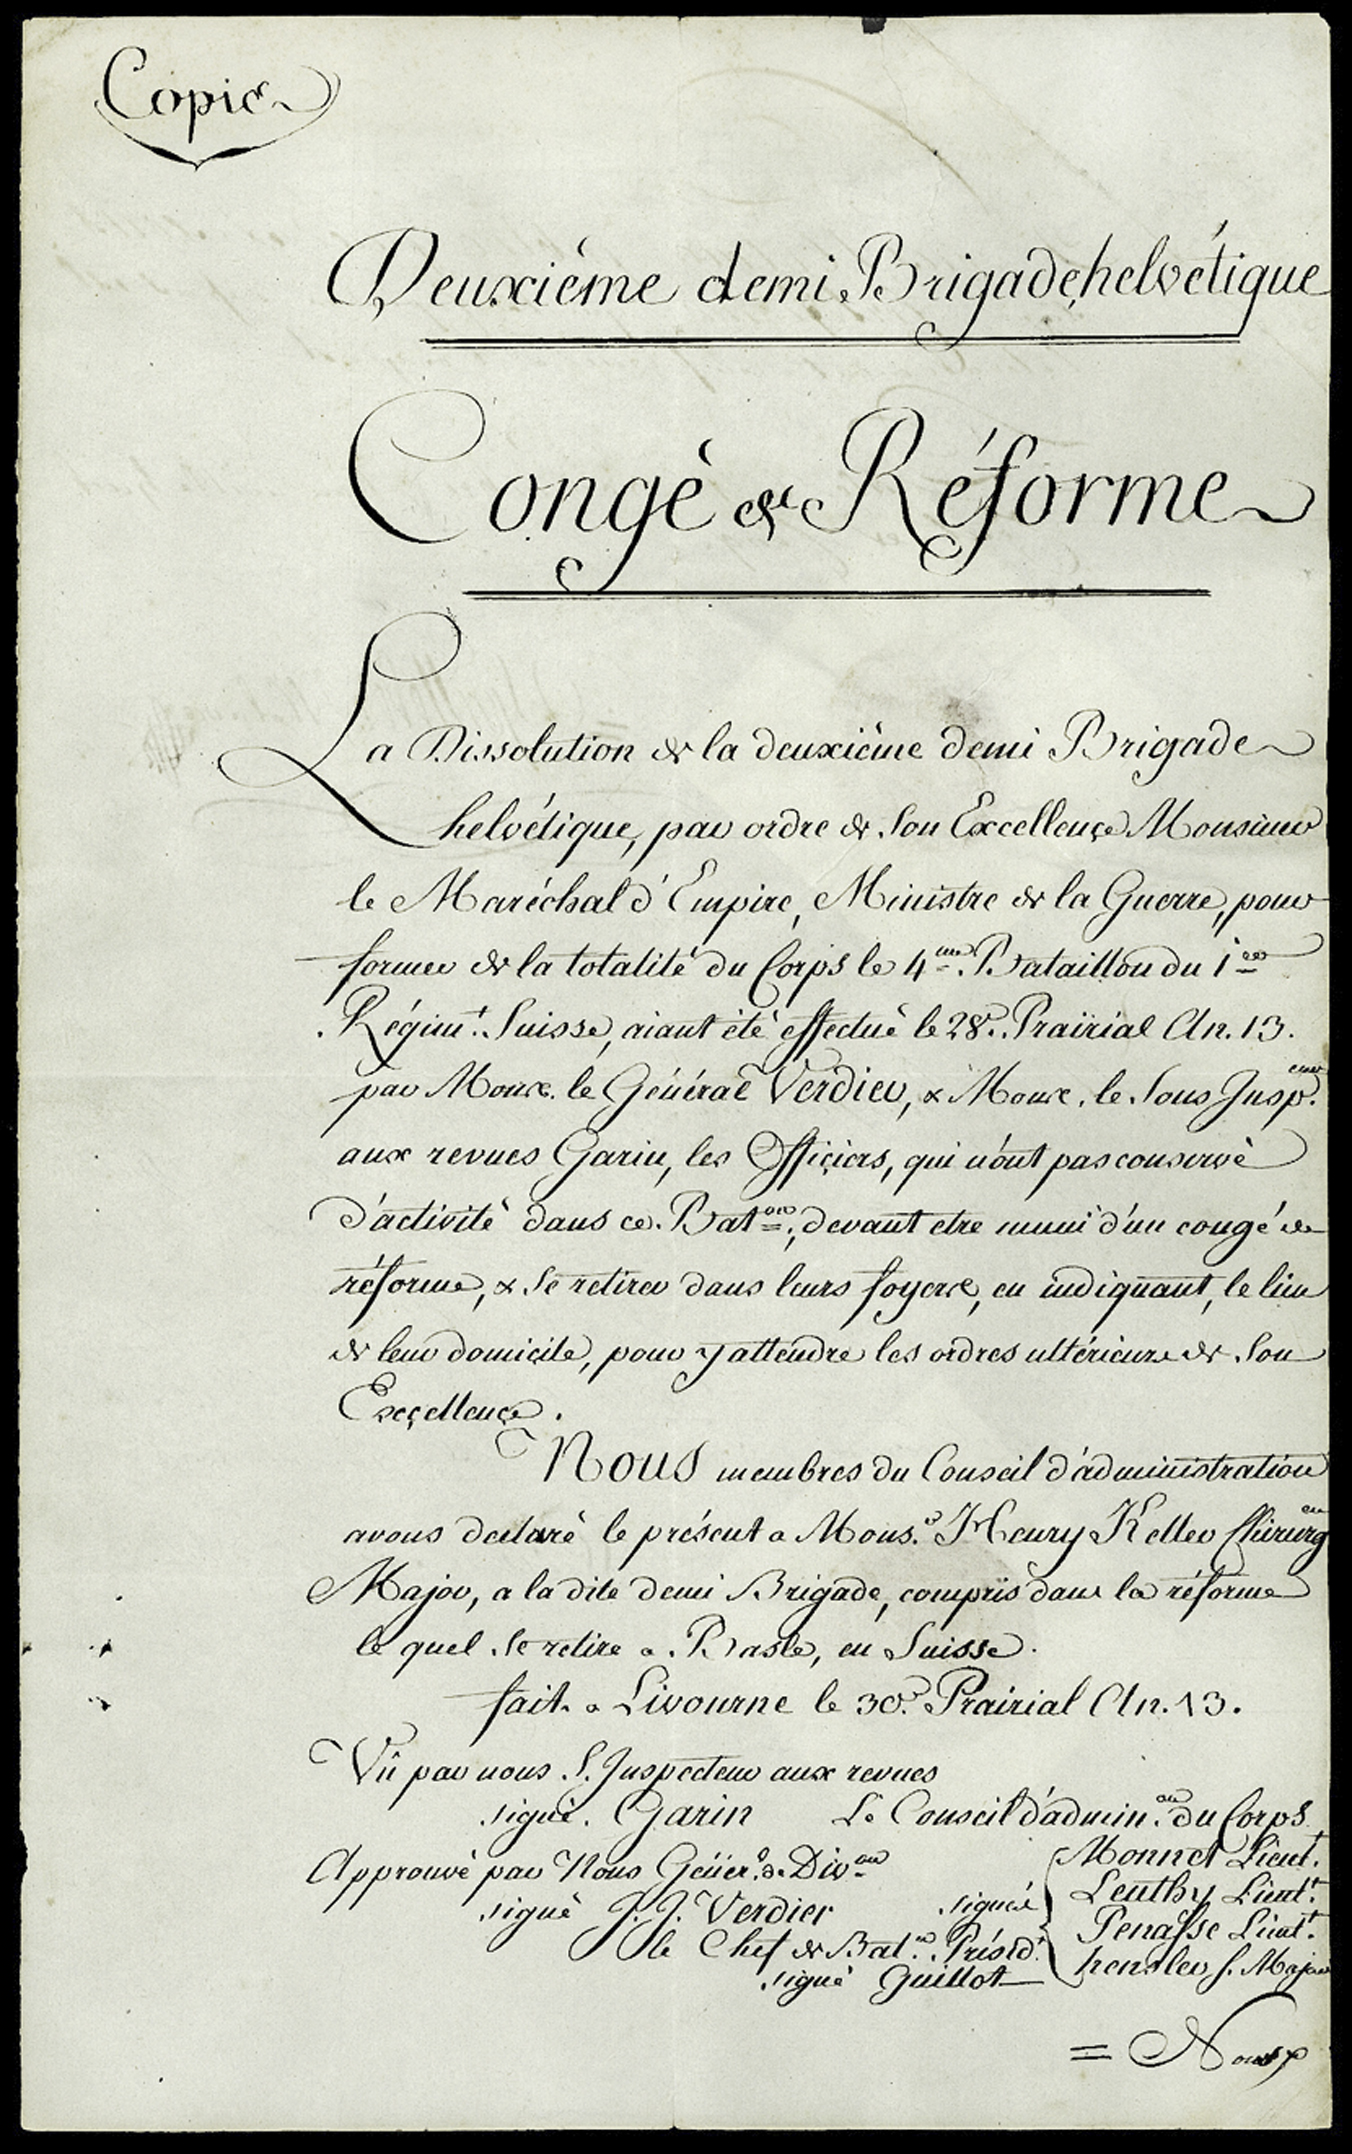 Copie
Deuxième demi Brigade helvétique
Congè de Réforme
La Dissolution de la deuxième demi Brigade
helvétique, par ordre de Son Excellence Monsieur
le Maréchal d'Empire, Ministre de la Guerre, pour
former de la totalité du Corps le 4me. Bataillon du 1er
Régimt. Suisse, aiant été effectué le 28e. Prairial An. 13.
par Monsr. le Général Verdier, & Monsr. le Sous Inspeur.
aux revues Garin, les Officiers, qui n'ont pas conservè
d'activité dans ce Baton; devant etre muni d'un congé de
réforme, & se retirer dans leurs foyers, en indiquant, le lieu
de leur domicile, pour y attendre les ordres ultérieurs de Son
Excellence.
Nous membres du Conseil d'administration
avons declaré le présent a Monsr. Henry Keller Chirurgen
Major, a la dite demi Brigade, compris dans la réforme
le quel se retire a Basle, en Suisse.
fait a Livourne le 30e. Prairial An. 13.
Vû par nous S. Inspecteur aux revues
signè. Garin Le Conseil d'admin.on du Corps
Approuvé par Nous Génér.l de Div.on
Monnet Lieut.
signè J. J. Verdier signés Leuthy Lieutt.
Penasse Lieutt.
le Chef de Bat.on Présidt.
signè Guillot S. Major
= Nous